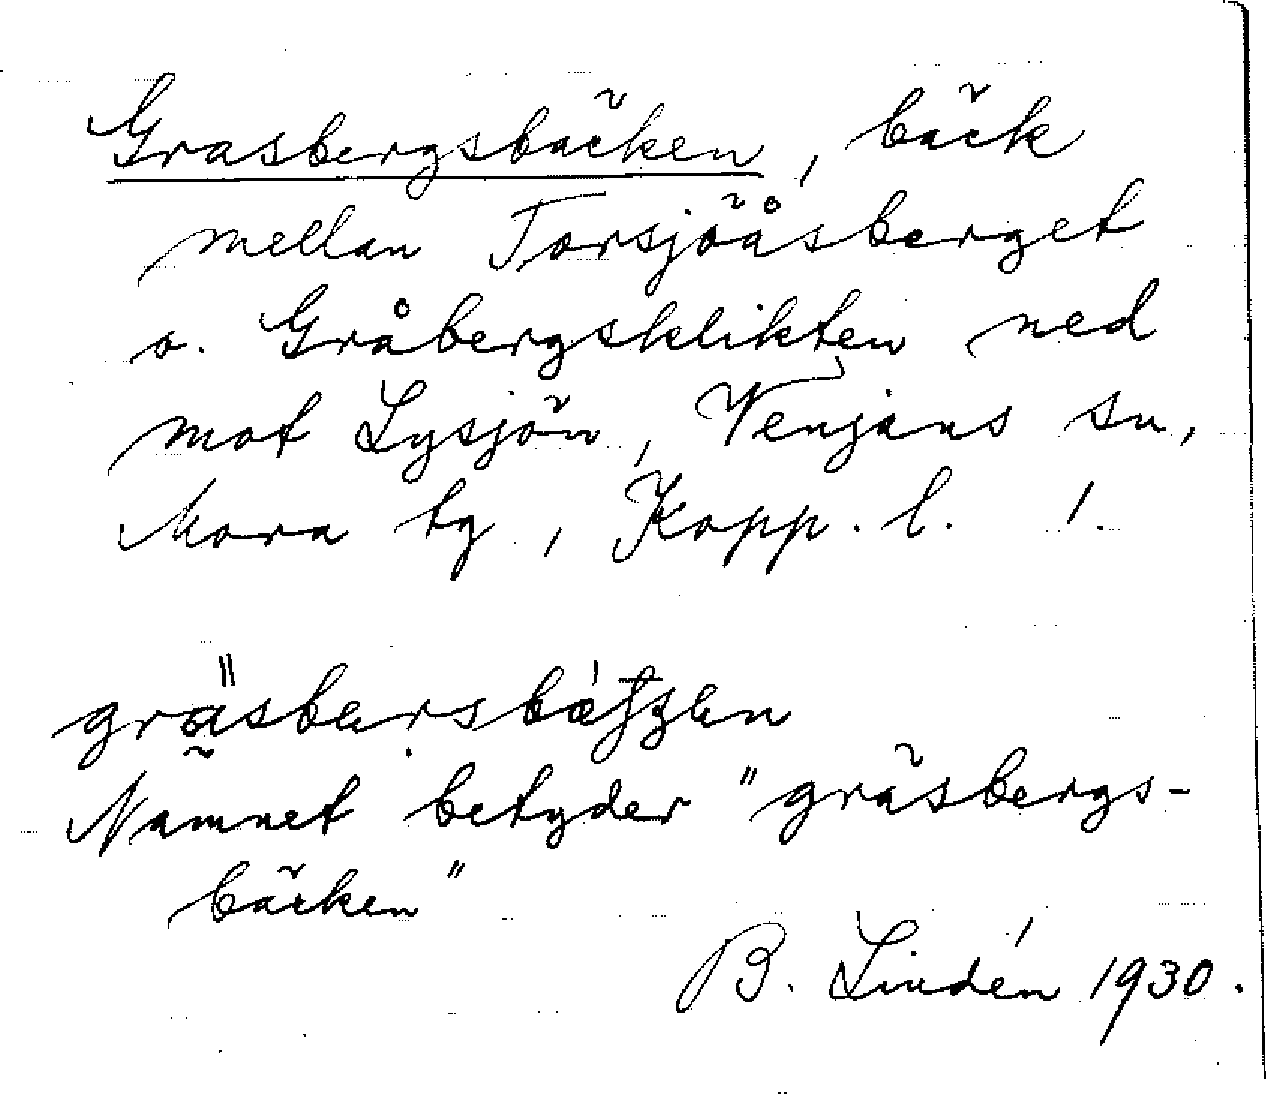 Grasbergsbäcken, bäck
mellan Torsjöåsberget
o. Gråbergsklikten ned
mot Lysjön, Venjans sn,
Mora tg, Kopp. l. !.
Namnet betyder "gräsbergs-
bäcken"
B. Lindén 1930.